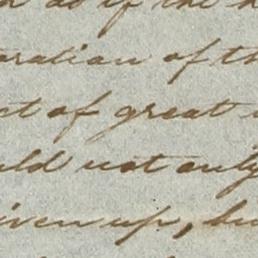 as if the
aration of th
ct of great
uld not only
iven up, bu